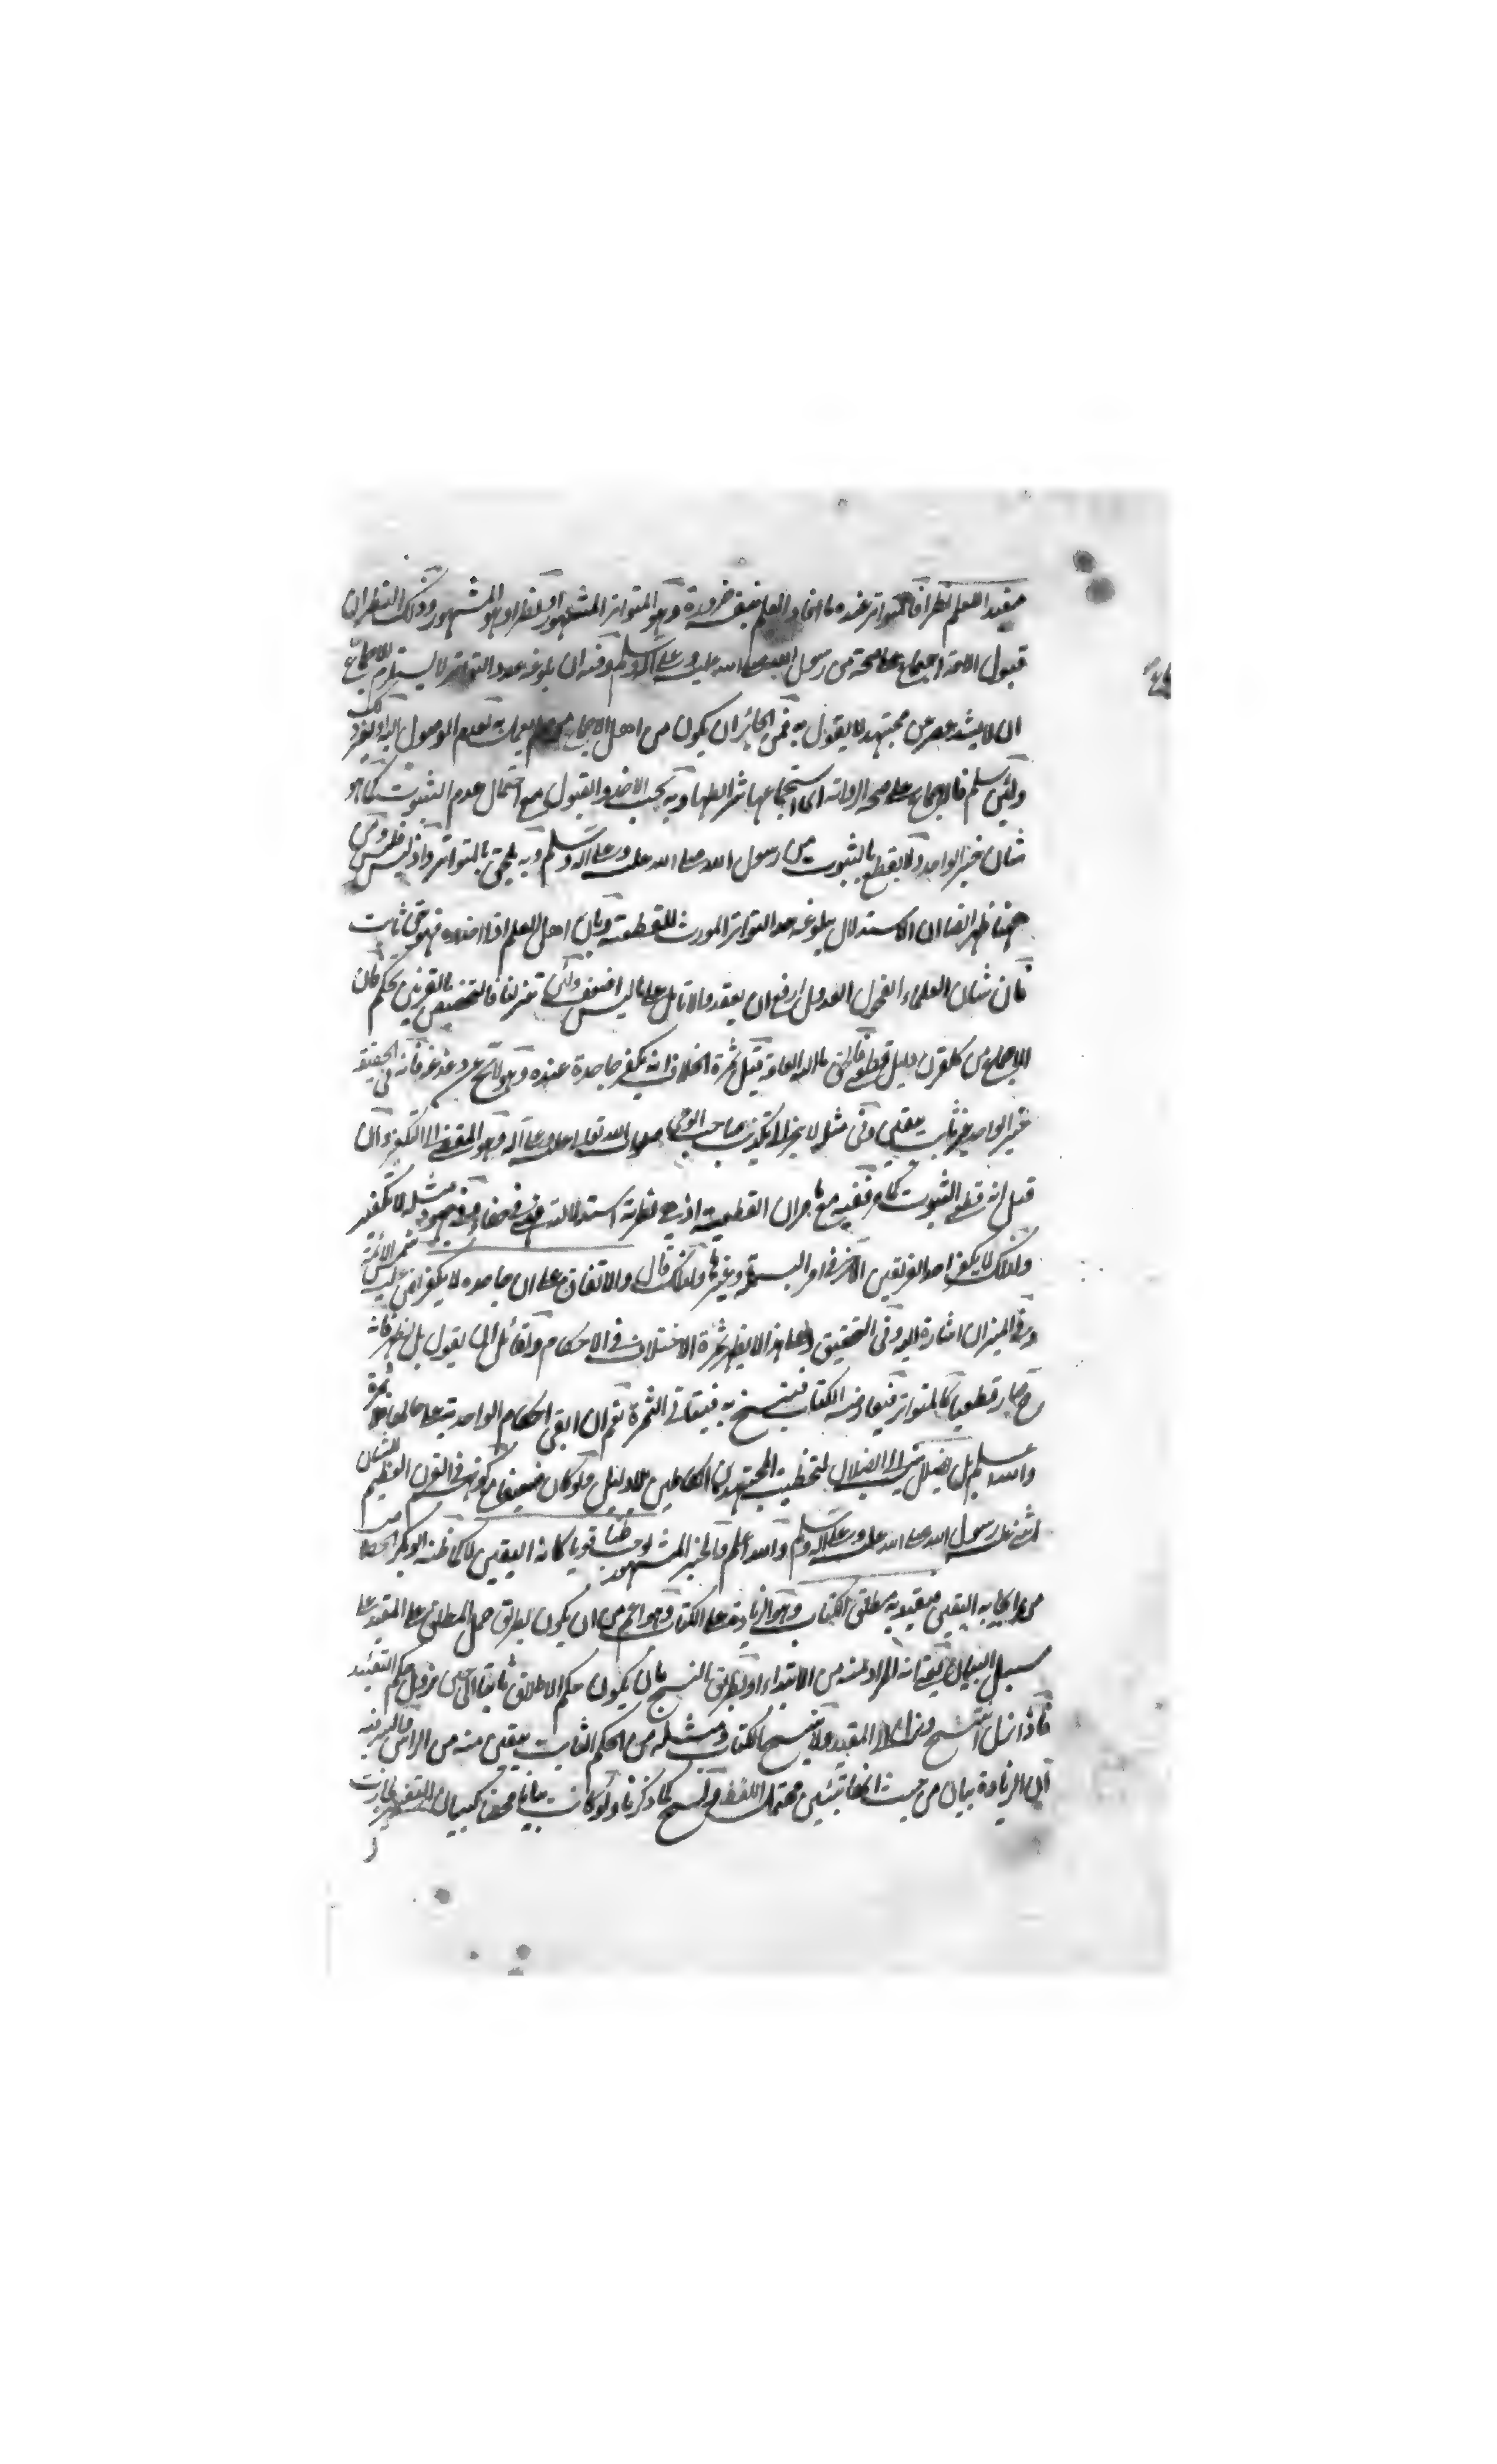 مفيد للعلم نظرا فالمتواتر عنده ما افاد العلم ضرورة وهو المتواتر المشهور او نظرا وهو المشهور وذلك النظر ان
قبول الامة اجماع على صحته من رسول الله صلى الله عليه وعلى آله وسلم وفيه ان بلوغه عدد التواتر لا يستلزم الاجماع
ان لا يشذ عصر عن مجتهد لا يقول به فمن الجائز ان يكون من اهل الاجماع لعدم الوصول اليه او لغير ذلك
ولئن سلم فالاجماع على صحة الرواية اي استجماعها شرائطها وبه يجب الاخذ والقبول مع احتمال عدم الثبوت كما هو
شان خبر الواحد ولا يقطع بالثبوت من رسول الله صلى الله عليه وعلى آله وسلم وبه يلحق بالتواتر واذ ليس فليس ومن
ههنا ظهر ايضا ان الاستدلال ببلوغه حد التواتر المورث للقطعية وبان اهل العلم اذا اخذوه فهو حق ثابت
فان شان العلماء الفحول العدول ارفع ان يعتقدوا لا تأمل على ما ليس ولئن تنزلنا فالتخصيص بالقرنين تحكم فان
الاجماع من كل قرن دليل قطعي فالحق ما اليه العامة قيل ثمرة الخلاف انه يكفر جاحده عنده وهو لا يخ عن دغدغة فانه في الحقيقة
خبر الواحد غير ثابت بيقين وفي مثله لا يجترأ تكذيب صاحب الوحي صلوات الله تعالى عليه وعلى آله وهو المفضي الى التكفير وان
قيل انه قطعي الثبوت كما مر ففيه مع ما مر ان القطعية اذ هي نظرية استدلالية فهي في خفاء وفي جحود مثله لا تكفير
ولذلك لا يكفر احد الفريقين الآخر في امر البسملة وغيرها ولذلك قال والاتفاق على ان جاحده لا يكفر شمس الائمة
وفي الميزان اشارة اليه وفي التحقيق وعلى هذا لا يظهر ثمرة الاختلاف في الاحكام ولقائل ان يقول بل يظهر فانه
ح صار قطعيا كالمتواتر فيعارضه الكتاب فينسخ به فيتأتى الثمرة نعم ان ابقى احكام الواحدية على حالها فلا ثمرة
والله اعلم بل يضلل الى الضلال لتخطية المجتهدين الكاملين بلا دليل ولو كان ضعيفا مع كونهم في القرن العظيم الشان
رسول الله صلى الله عليه وعلى آله وسلم والله اعلم والخبر المشهور يوجب ظنا قويا كانه اليقين لا كما ظنه ابو بكر الجصاص
من ايجابه اليقين فيقيد به مطلق الكتاب وهو الزيادة على الكتاب وهو اعم من ان يكون بطريق حمل المطلق على المقيد على
سبيل البيان انه المراد منه من الابتداء او بطريق النسخ بان يكون حكم الاطلاق ثابتا الى حين نزول حكم التقييد
فاذا نزل انتسخ ونزل المقيد ولا ينسخ الكتاب ومثله من الحكم الثابت بيقين منه من الراس فالسر فيه
ان الزيادة بيان من حيث انها تبيين محتمل اللفظ ونسخ كما ذكرنا ولو كانت بيانا محضا كبيان التفسير لجازت